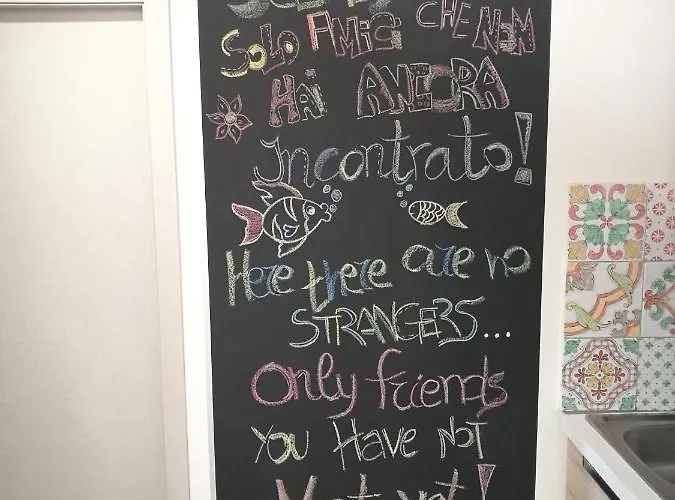 SOLO AMiCi CHE NON
HAi ANCORA
incontrato!
Here there are no
STRANGERS...
Only friends
you Have NoT
Met yet!